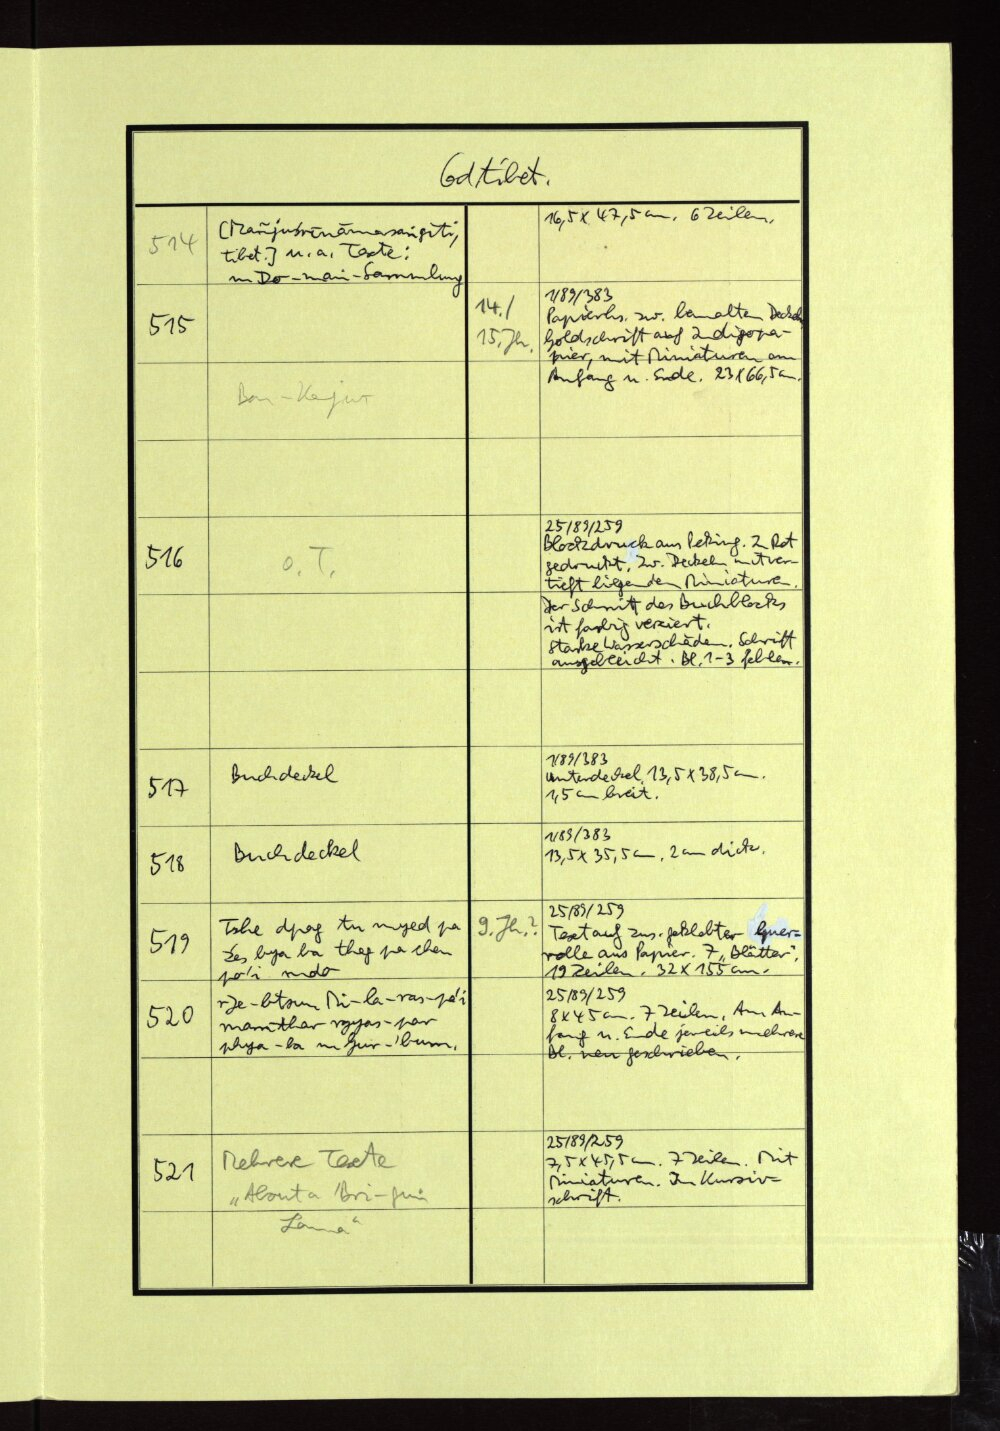 Cod. tibet.
514
[Mañjuśrīnāmasaṅgīti,
tibet.] u. a. Texte:
in Do-man-Sammlung
16,5 x 47,5 cm. 6 Zeilen.
515
14./
15. Jh.
1/89/383
Papierhs. zw. bemalten Deckeln
Goldschrift auf Indigopa-
pier, mit Miniaturen am
Anfang u. Ende. 23 x 66,5 cm.
Bon-Kanjur
516
o. T.
25/89/259
Blockdruck aus Peking. In Rot
gedruckt, zw. Deckeln mit ver-
tieft liegenden Miniaturen.
Der Schnitt des Buchblocks
ist farbig verziert.
Starke Wasserschäden. Schrift
ausgebleicht. Bl. 1-3 fehlen.
517
Buchdeckel
1/89/383
Unterdeckel, 13,5 x 38,5 cm.
1,5 cm breit.
518
Buchdeckel
1/89/383
13,5 x 35,5 cm, 2 cm dick.
519
Tshe dpag tu myed pa
źes bya ba theg pa chen
po'i mdo
9. Jh.?
25/89/259
Text auf zus. geklebter Quer-
rolle aus Papier. 7 „Blätter",
19 Zeilen. 32 x 155 cm.
520
rJe-btsun Mi-la-ras-pa'i
rnam-thar rgyas-par
phye-ba mGur-'bum.
25/89/259
8 x 45 cm. 7 Zeilen. Am An-
fang u. Ende jeweils mehrere
Bl. neu geschrieben.
521
Mehrere Texte
„About a 'Bri-guṅ
Lama"
25/89/259
7,5 x 45,5 cm. 7 Zeilen. Mit
Miniaturen. In Kursiv-
schrift.